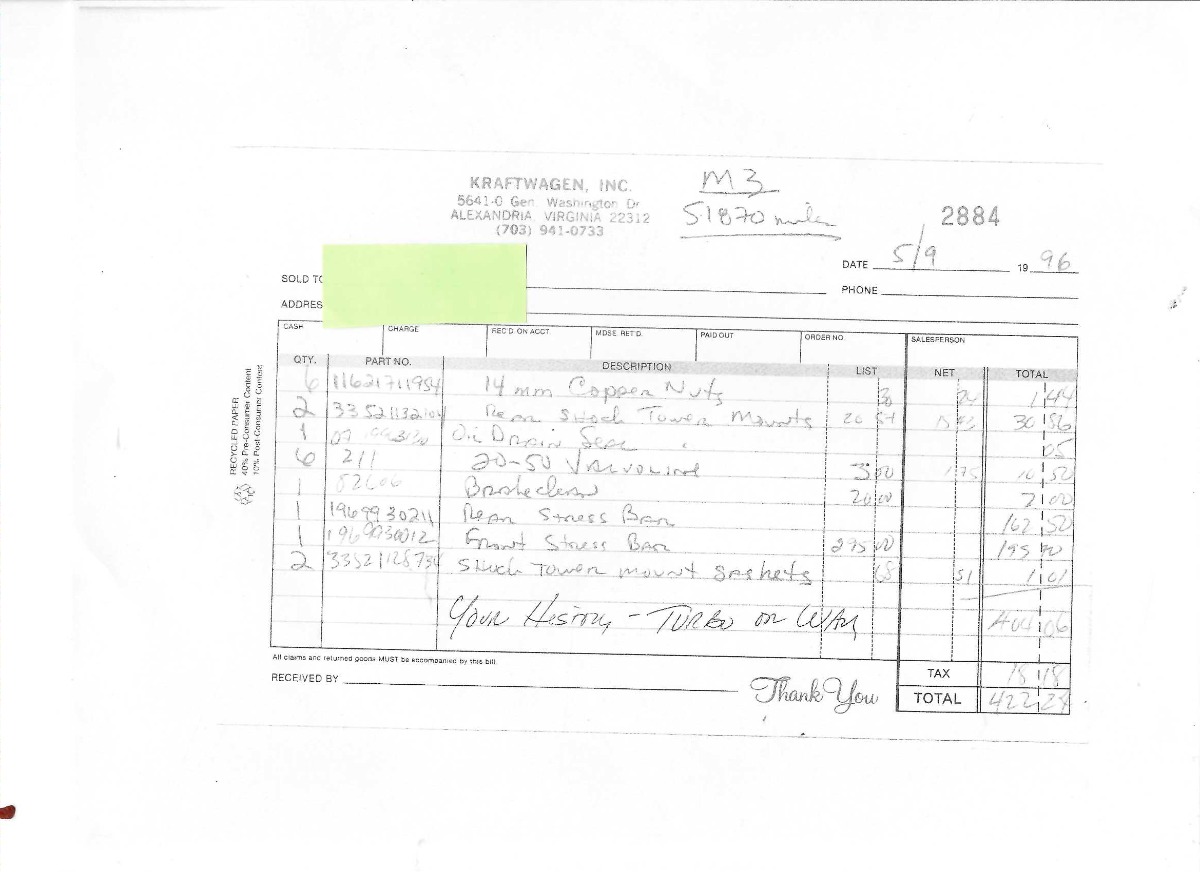 KRAFTWAGEN, INC.
5641-O Gen. Washington Dr
ALEXANDRIA, VIRGINIA 22312
(703) 941-0733
M3
51870 miles
2884
DATE 5/9 19 96
SOLD TO
PHONE
ADDRES
CASH CHARGE REC'D. ON ACCT. MDSE. RET'D. PAID OUT ORDER NO. SALESPERSON
QTY. PART NO. DESCRIPTION LIST NET TOTAL
6 11621711954 14 mm Copper Nuts 1 44
2 Rear Shock Tower Mounts 30 56
1 Oil Drain Seal 05
6 211 20-50 Valvoline 3 00 1 75 10 50
1 Brakeclean 20 00 2 00
1 1969930211 Rear Stress Bar 162 50
1 1969930012 Front Stress Bar 295 00 195
2 Shock Tower Mount Gaskets 68 51 1 01
Your History - Turbo on Way 404 06
All claims and returned goods MUST be accompanied by this bill.
TAX 18 18
RECEIVED BY Thank You
TOTAL 422 24
RECYCLED PAPER
40% Pre-Consumer Content
10% Post-Consumer Content